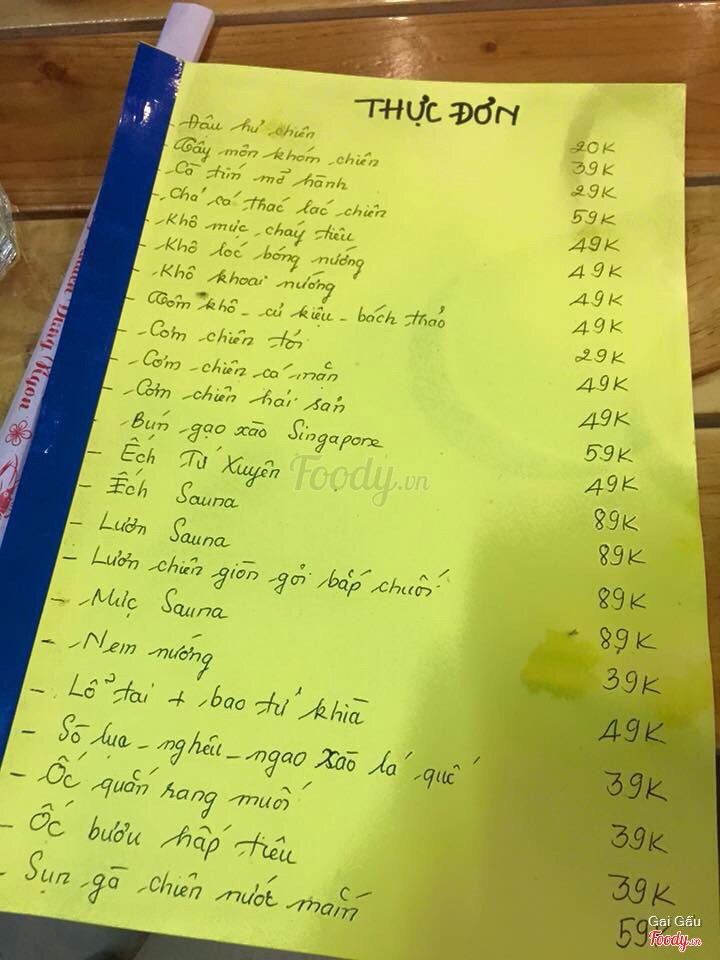 THỰC ĐƠN
- Đâu hư chiên 20K
- Tây môn khóm chiên 39K
- Cà tím mở hành 29K
- Chả cá thác lác chiên 59K
- Khô mực cháy tiêu 49K
- Khô lóc bóng nướng 49K
- Khô khoai nướng 49K
- Tôm khô - củ kiệu - bách thảo 49K
- Cơm chiên tỏi 29K
- Cơm chiên cá mặn 49K
- Cơm chiên hải sản 49K
- Bún gạo xào Singapore 59K
- Ếch Tứ Xuyên 49K
- Ếch Sauna 89K
- Lươn Sauna 89K
- Lươn chiên giòn gỏi bắp chuối 89K
- Mực Sauna 89K
- Nem nướng 39K
- Lổ tai + bao tử khìa 49K
- Sò lụa - nghêu - ngao xào lá quế 39K
- Ốc quắn rang muối 39K
- Ốc bươu hấp tiêu 39K
- Sụn gà chiên nước mắm 59K
Foody.vn
Gai Gấu
Foody.vn